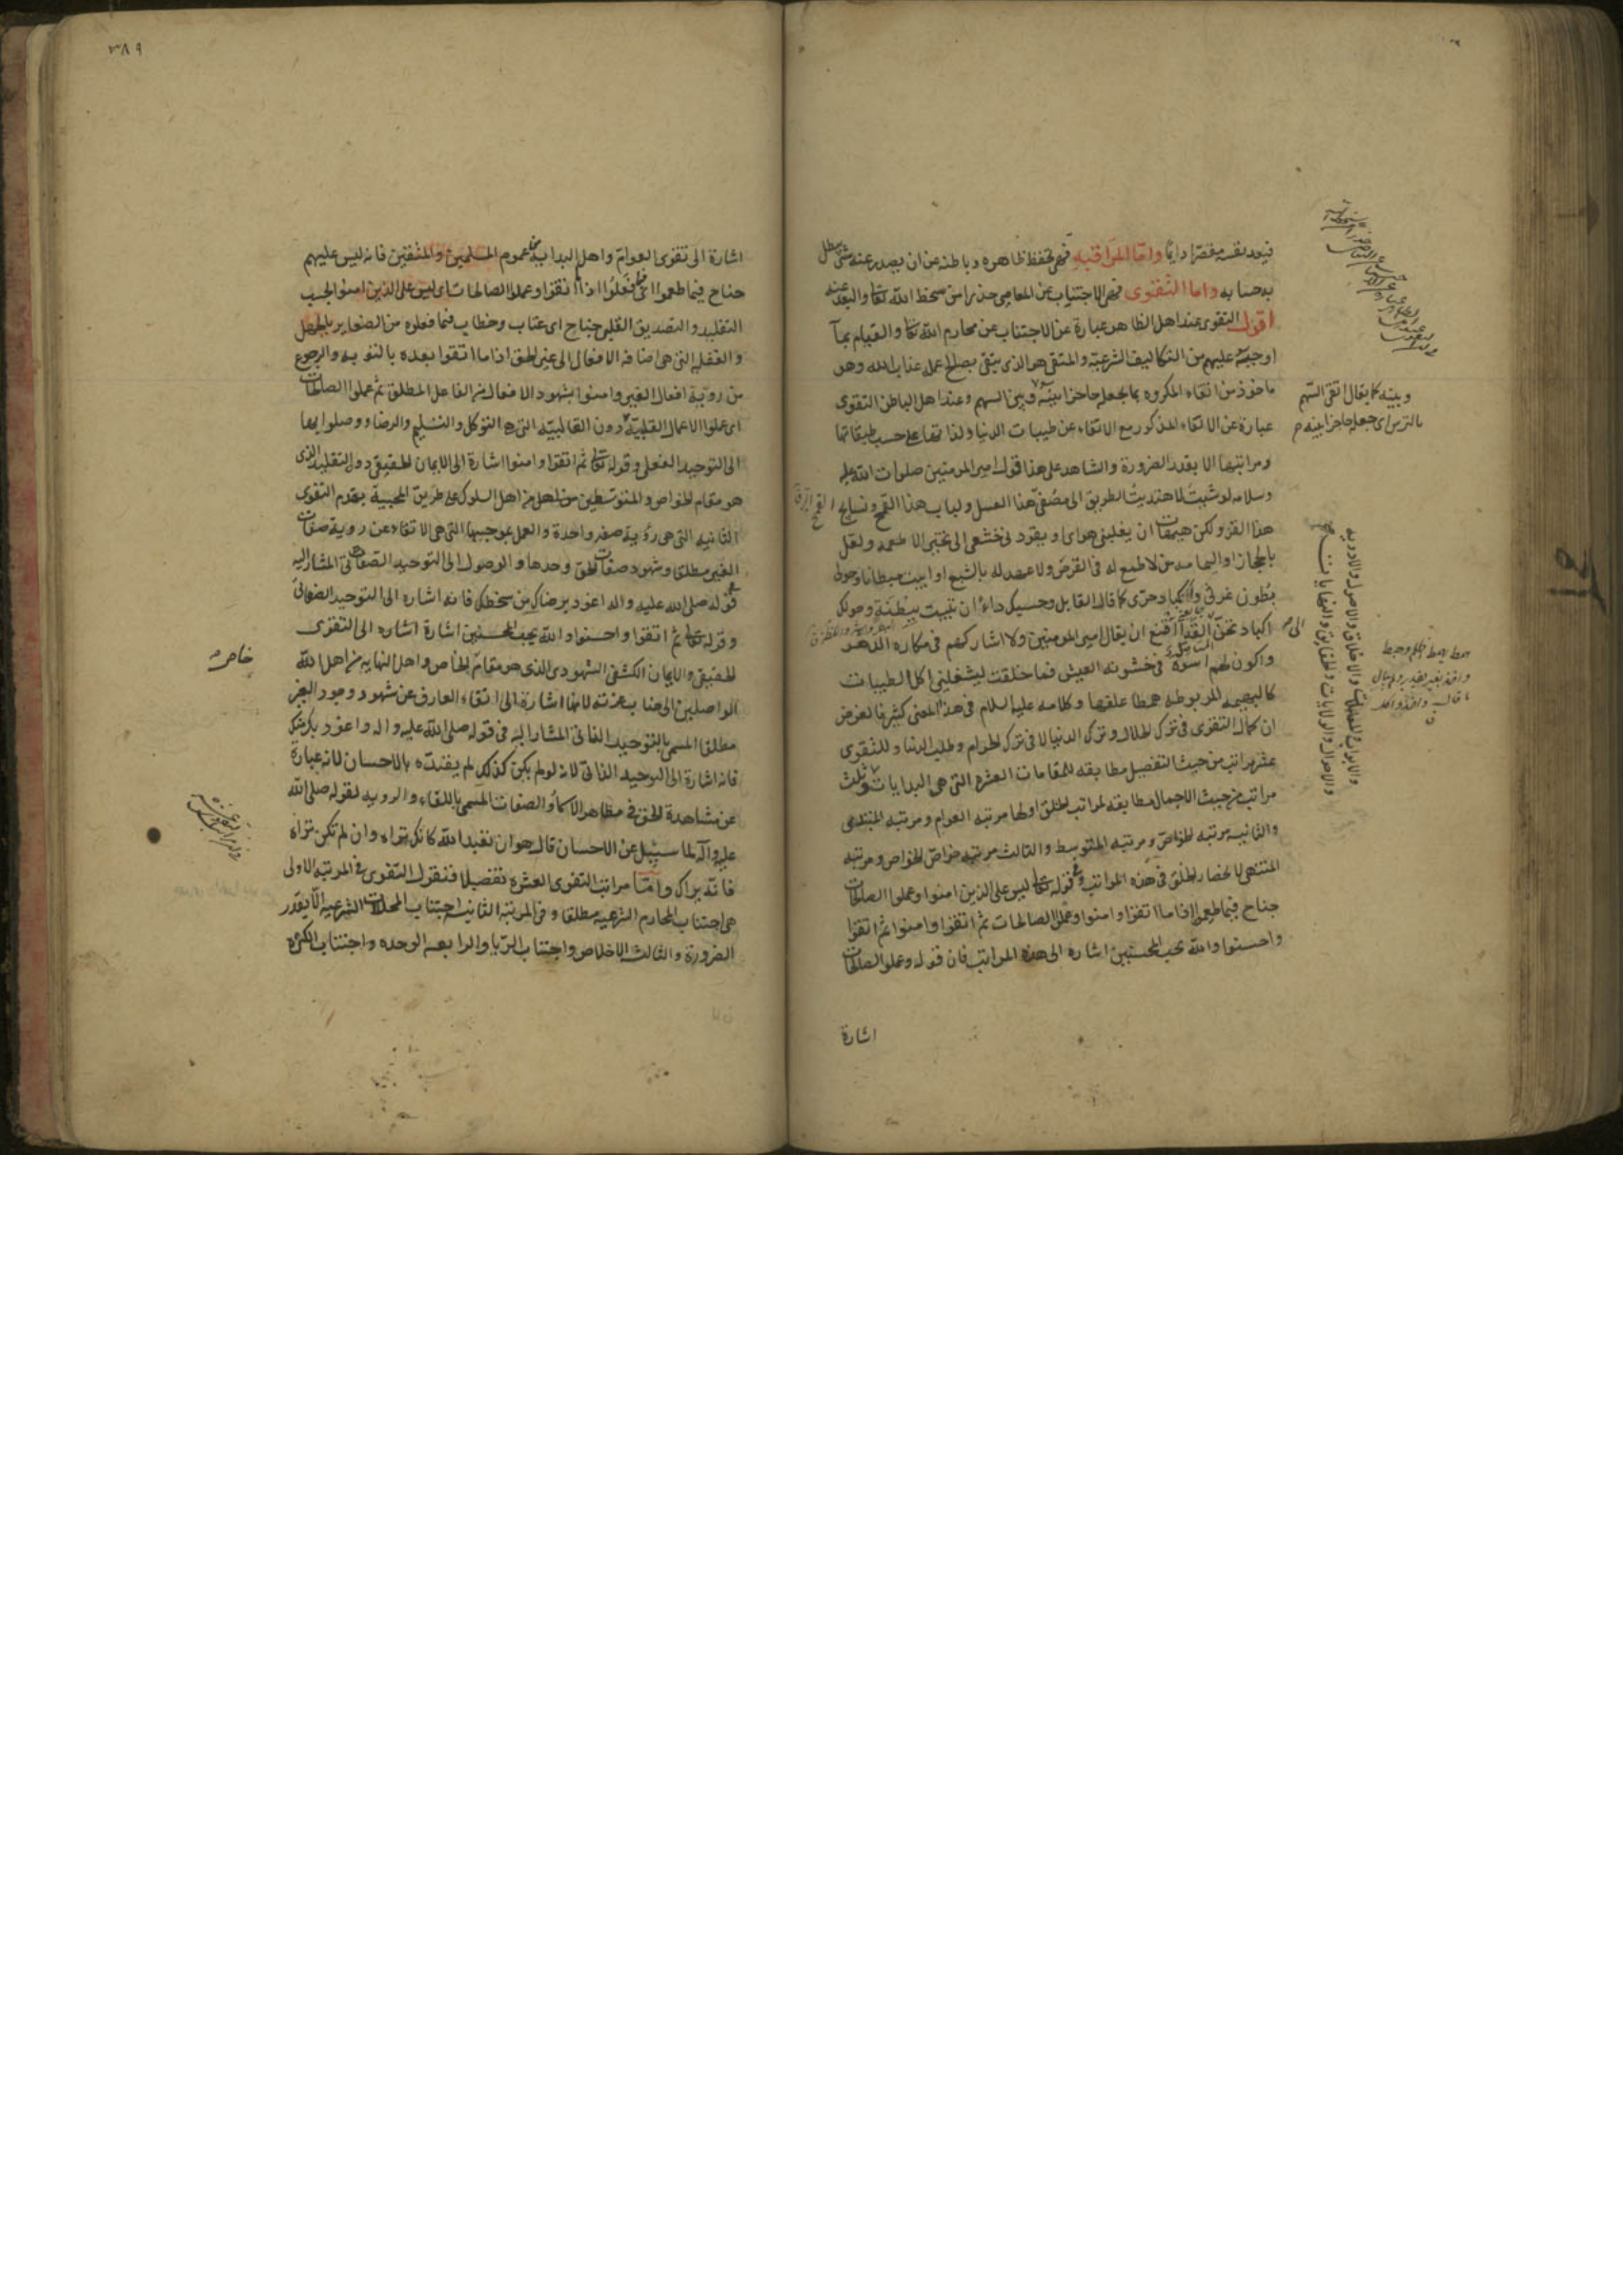 فيعد نفسه مقصرا دايما واما المراقبة فهى تحفظ ظاهره وباطنه عن ان يصدر عنه شى يبطل
به حسناته واما التقوى فهى الاجتناب عن المعاصى حذرا من سخط الله تعا والبعد عنه
اقول التقوى عند اهل الظاهر عبارة عن الاجتناب عن محارم الله تعا والقيام بما
اوجبه عليهم من التكاليف الشرعية والمتقى هو الذى يتقى بصالح عمله عذاب الله وهو
ماخوذ من اتقاء المكروه بما يجعله حاجزا بينه وبين السهم وعند اهل الباطن التقوى
عبارة عن الاتقاء المذكور مع الاتقاء عن طيبات الدنيا ولذاتها على حسب طبقاتها
ومراتبها الا بقدر الضرورة والشاهد على هذا قول امير المومنين صلوات الله عليه
وسلامه لو شيت لاهتديت الطريق الى مصفى هذا العسل ولباب هذا القمح ونسايج
هذا القز ولكن هيهات ان يغلبنى هواى ويقودنى جشعى الى تخير الاطعمة ولعل
بالحجاز او اليمامه من لا طمع له فى القرص ولا عهد له بالشبع او ابيت مبطانا وحولى
بطون غرثى واكباد حرى كما قال القايل وحسبك داء ان تبيت ببطنة وحولك
اكباد تحن الى القد ااقنع ان يقال امير المومنين ولا اشاركهم فى مكاره الدهر
واكون لهم اسوة فى خشونه العيش فما خلقت ليشغلنى اكل الطيبات
كالبهيمه المربوطه همها علفها وكلامه عليه السلام فى هذا المعنى كثير فالغرض
ان كمال التقوى فى ترك الحلال وترك الدنيا لا فى ترك الحرام وطلب الدنيا وللتقوى
عشر مراتب من حيث التفصيل مطابقه للمقامات العشره التى هى البدايات وثلث
مراتب من حيث الاجمال مطابقه لمراتب الخلق اولها مرتبه العوام ومرتبه المبتدى
والثانيه مرتبه الخواص ومرتبه المتوسط والثالث مرتبه خواص الخواص ومرتبه
المنتهى لانحصار الخلق فى هذه المراتب وفى قوله تعا ليس على الذين امنوا وعملوا الصالحات
جناح فيما طعموا اذا ما اتقوا وامنوا وعملوا الصالحات ثم اتقوا وامنوا ثم اتقوا
واحسنوا والله يحب المحسنين اشاره الى هذه المراتب فان قوله وعملوا الصالحات
اشارة
وبينه كما يقال اتقى السهم
بالترس اى جعله حاجزا بينه م
والابواب والمعاملات والاخلاق والاصول والاوديه
والاحوال والولايات والحقايق والنهايات
٣٨٩
اشارة الى تقوى العوام واهل البداية من عموم المسلمين والمتقين فانه ليس عليهم
جناح فيما طعموا اى فيما فعلوا اذا ما اتقوا وعملوا الصالحات اى ليس على الذين امنوا بحسب
التقليد والتصديق القلبى جناح اى عتاب وخطاب فيما فعلوه من الصغاير بالجهل
والغفلة التى هى اضافه الافعال الى غير الحق اذا ما اتقوا بعده بالتوبه والرجوع
من روية افعال الغير وامنوا بشهود الافعال من الفاعل المطلق ثم عملوا الصالحات
اى عملوا الاعمال القلبية دون القالبية التى هى التوكل والتسليم والرضا ووصلوا بها
الى التوحيد الفعلى وقوله تعا ثم اتقوا وامنوا اشارة الى الايمان الحقيقى دون التقليد الذى
هو مقام الخواص والمتوسطين من اهل الله من اهل السلوك على طريق المحبية بقدم التقوى
الثانيه التى هى روية صفه واحدة والعمل بموجبها التى هى الاتقاء عن روية صفات
الغير مطلقا وشهود صفات الحق وحدها والوصول الى التوحيد الصفاتى المشار اليه
فى قوله صلى الله عليه واله اعوذ برضاك من سخطك فانه اشاره الى التوحيد الصفاتى
وقوله تعا ثم اتقوا واحسنوا والله يحب المحسنين اشارة الى التقوى
الحقيقى والايمان الكشفى الشهودى الذى هو مقام الخاص واهل النهاية من اهل الله
الواصلين الى جناب عزته لانها اشارة الى اتقاء العارف عن شهود وجود الغير
مطلقا المسمى بالتوحيد الذاتى المشار اليه فى قوله صلى الله عليه واله واعوذ بك منك
فانه اشارة الى التوحيد الذاتى لانه لو لم يكن كذلك لم يقيده بالاحسان لانه عبارة
عن مشاهدة الحق فى مظاهر الاسماء والصفات المسمى باللقاء والرويه لقوله صلى الله
عليه واله لما سيل عن الاحسان قال هو ان تعبد الله كانك تراه وان لم تكن تراه
فانه يراك واما مراتب التقوى العشره تفصيلا فنقول التقوى فى المرتبه الاولى
هى اجتناب المحارم الشرعيه مطلقا وفى المرتبة الثانيه اجتناب المحللات الشرعيه الا بقدر
الضرورة والثالث الاخلاص واجتناب الريا والرابعه الوحده واجتناب الكثره
خاص